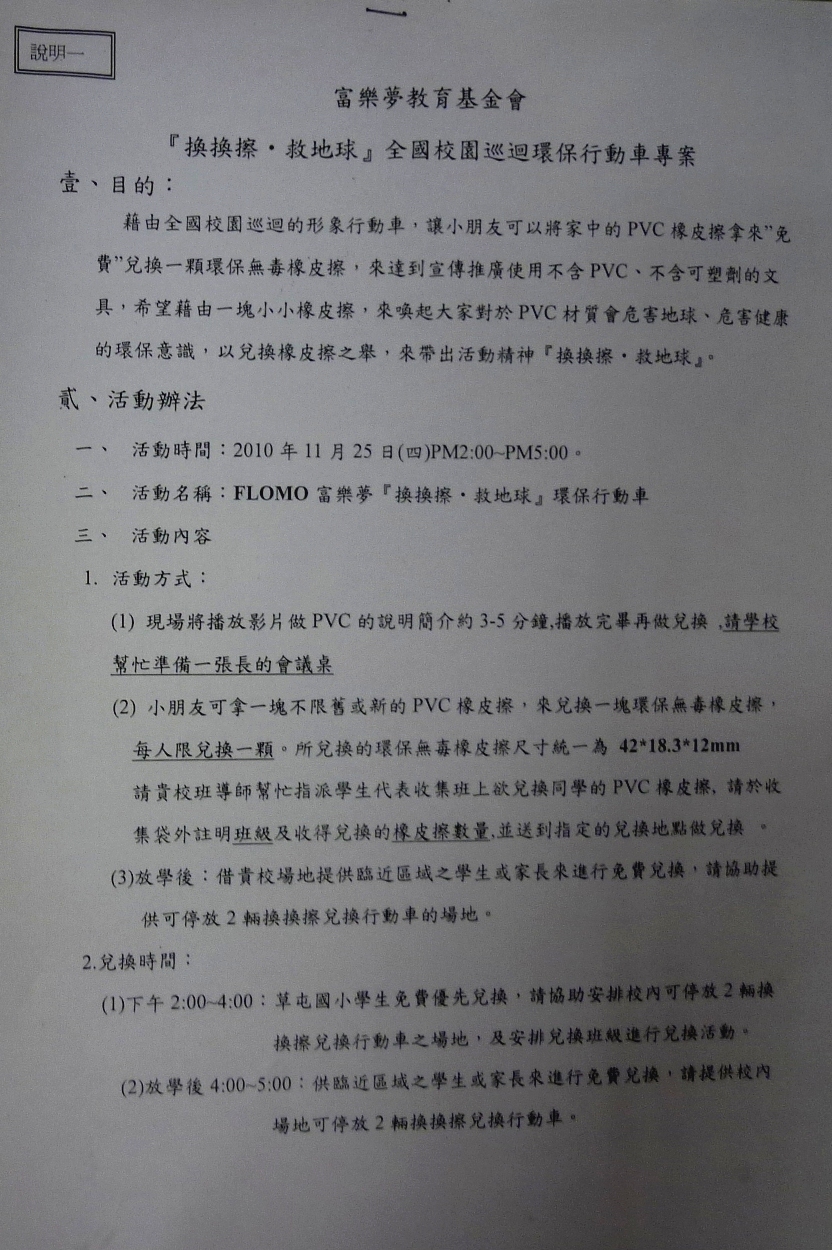 說明一
富樂夢教育基金會
『換換擦・救地球』全國校園巡迴環保行動車專案
壹、目的：
藉由全國校園巡迴的形象行動車，讓小朋友可以將家中的 PVC 橡皮擦拿來"免
費"兌換一顆環保無毒橡皮擦，來達到宣傳推廣使用不含 PVC、不含可塑劑的文
具，希望藉由一塊小小橡皮擦，來喚起大家對於 PVC 材質會危害地球、危害健康
的環保意識，以兌換橡皮擦之舉，來帶出活動精神『換換擦・救地球』。
貳、活動辦法
一、 活動時間：2010 年 11 月 25 日(四)PM2:00~PM5:00。
二、 活動名稱：FLOMO 富樂夢『換換擦・救地球』環保行動車
三、 活動內容
1. 活動方式：
(1) 現場將播放影片做 PVC 的說明簡介約 3-5 分鐘,播放完畢再做兌換 ,請學校
幫忙準備一張長的會議桌
(2) 小朋友可拿一塊不限舊或新的 PVC 橡皮擦，來兌換一塊環保無毒橡皮擦，
每人限兌換一顆。所兌換的環保無毒橡皮擦尺寸統一為 42*18.3*12mm
請貴校班導師幫忙指派學生代表收集班上欲兌換同學的 PVC 橡皮擦, 請於收
集袋外註明班級及收得兌換的橡皮擦數量,並送到指定的兌換地點做兌換 。
(3)放學後：借貴校場地提供臨近區域之學生或家長來進行免費兌換，請協助提
供可停放 2 輛換換擦兌換行動車的場地。
2.兌換時間：
(1)下午 2:00~4:00：草屯國小學生免費優先兌換，請協助安排校內可停放 2 輛換
換擦兌換行動車之場地，及安排兌換班級進行兌換活動。
(2)放學後 4:00~5:00：供臨近區域之學生或家長來進行免費兌換，請提供校內
場地可停放 2 輛換換擦兌換行動車。